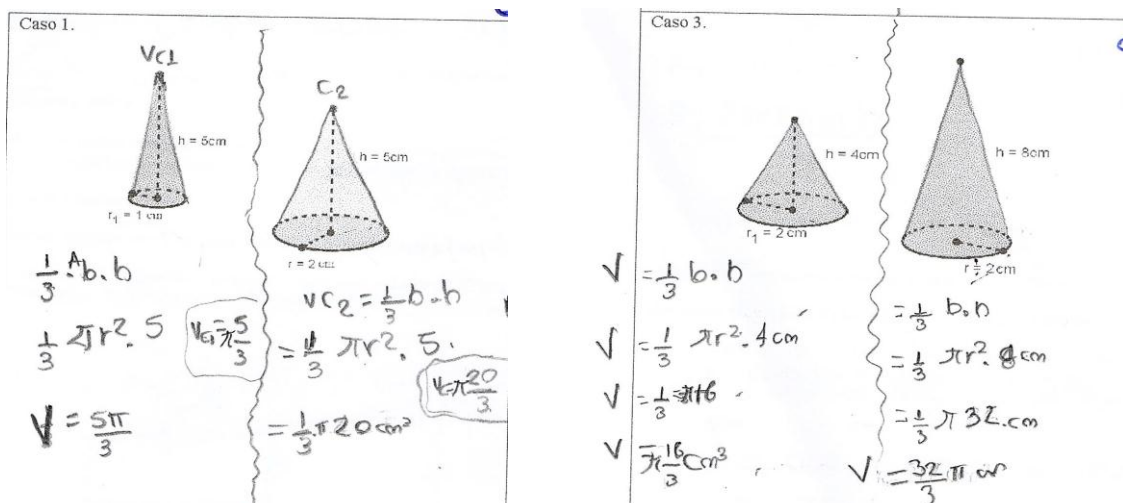 Caso 1.
VC1
h = 5cm
r₁ = 1 cm
1/3 . Ab . h
1/3 πr². 5
VC1 = π5/3
V = 5π/3
C2
h = 5cm
r = 2 cm
VC2 = 1/3 b . h
= 1/3 πr². 5.
V = π20/3
= 1/3 . π 20 cm³
Caso 3.
h = 4cm
r₁ = 2 cm
V = 1/3 b . h
V = 1/3 πr². 4cm
V = 1/3
V = π16/3 cm³
h = 8cm
r = 2cm
= 1/3 b . h
= 1/3 πr². 8cm
= 1/3 π 32 . cm
V = 32/3 π